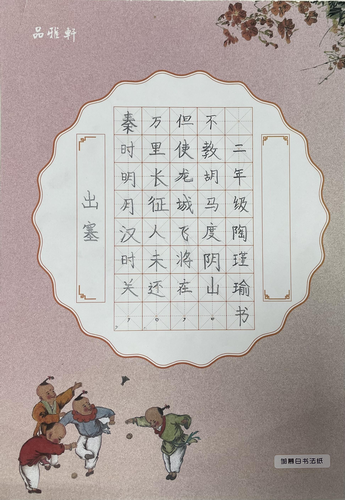 品雅軒
出塞
秦时明月汉时关，
万里长征人未还。
但使龙城飞将在，
不教胡马度阴山。
二年级陶瑾瑜书
书法纸